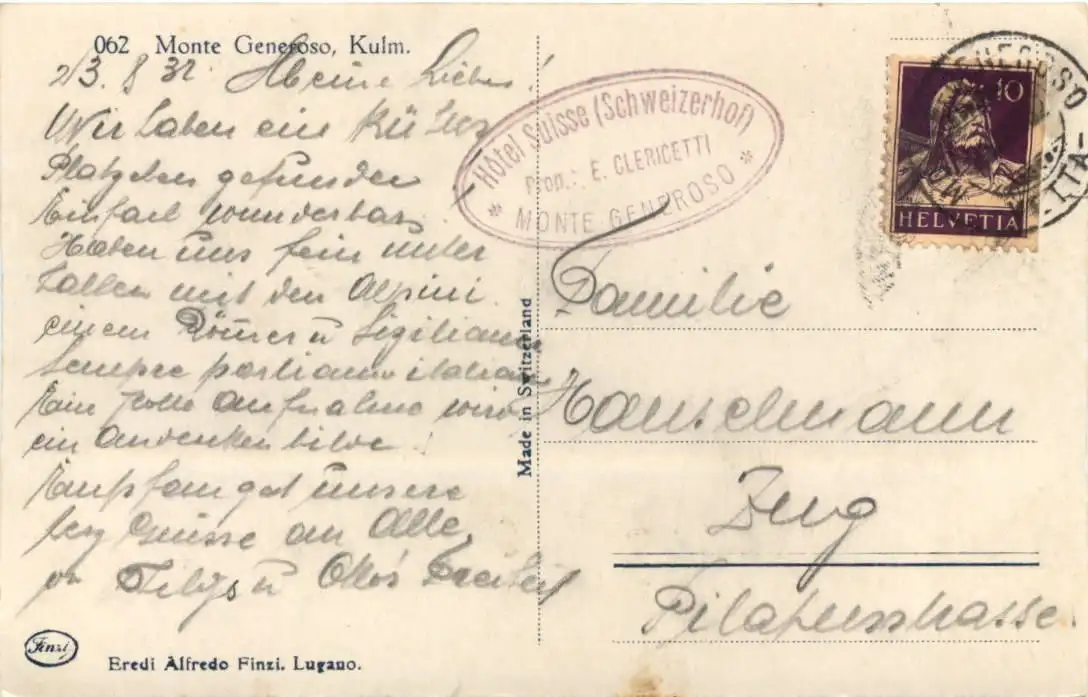 062 Monte Generoso, Kulm.
2/3.8 32 Meine Lieben!
Wir haben ein
gefunden
Einfach wunderbar.
Haben uns fein unter
halten mit den Alpini
einem Römer u Siziliano
Sempre parliamo italiano
Foto Aufnahme wird
ein Andenken bilde!
Empfanget unsere
Grüsse an Alle
Otto's
Hôtel Suisse (Schweizerhof)
Prop.: E. CLERICETTI
* MONTE GENEROSO *
10
HELVETIA
GENEROSO
Made in Switzerland
Familie
Hanselmann
Zug
Pilatusstrasse
Finzi
Eredi Alfredo Finzi. Lugano.